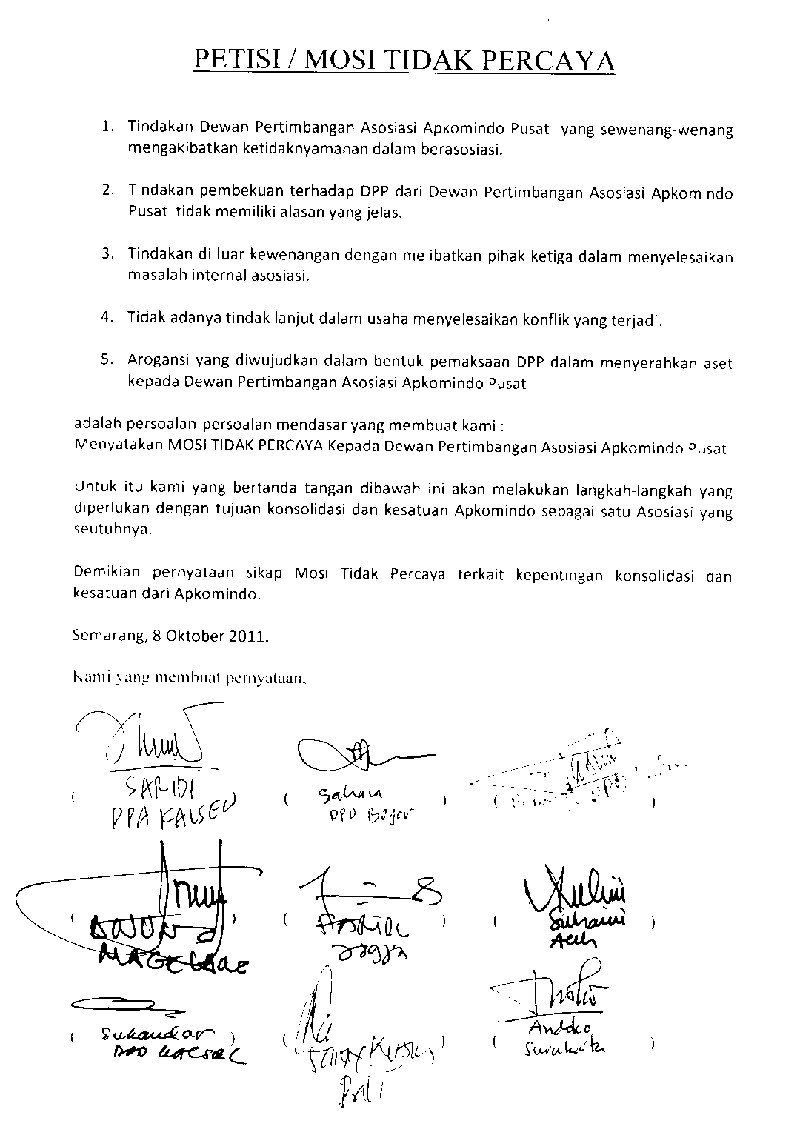 PETISI / MOSI TIDAK PERCAYA
1. Tindakan Dewan Pertimbangan Asosiasi Apkomindo Pusat yang sewenang-wenang
mengakibatkan ketidaknyamanan dalam berasosiasi.
2. Tindakan pembekuan terhadap DPP dari Dewan Pertimbangan Asosiasi Apkomindo
Pusat tidak memiliki alasan yang jelas.
3. Tindakan di luar kewenangan dengan melibatkan pihak ketiga dalam menyelesaikan
masalah internal asosiasi.
4. Tidak adanya tindak lanjut dalam usaha menyelesaikan konflik yang terjadi.
5. Arogansi yang diwujudkan dalam bentuk pemaksaan DPP dalam menyerahkan aset
kepada Dewan Pertimbangan Asosiasi Apkomindo Pusat
adalah persoalan persoalan mendasar yang membuat kami :
Menyatakan MOSI TIDAK PERCAYA Kepada Dewan Pertimbangan Asosiasi Apkomindo Pusat
Untuk itu kami yang bertanda tangan dibawah ini akan melakukan langkah-langkah yang
diperlukan dengan tujuan konsolidasi dan kesatuan Apkomindo sebagai satu Asosiasi yang
seutuhnya.
Demikian pernyataan sikap Mosi Tidak Percaya terkait kepentingan konsolidasi dan
kesatuan dari Apkomindo.
Semarang, 8 Oktober 2011.
Kami yang membuat pernyataan,
( SARIDI
DPA KALSEL
( Sahara )
DPD Bogor
( )
( )
MAGELANG
( )
Jogja
( Suhaimi )
Aceh
( Sukandar )
DPD
( )
Bali
( Andoko )
Surakarta